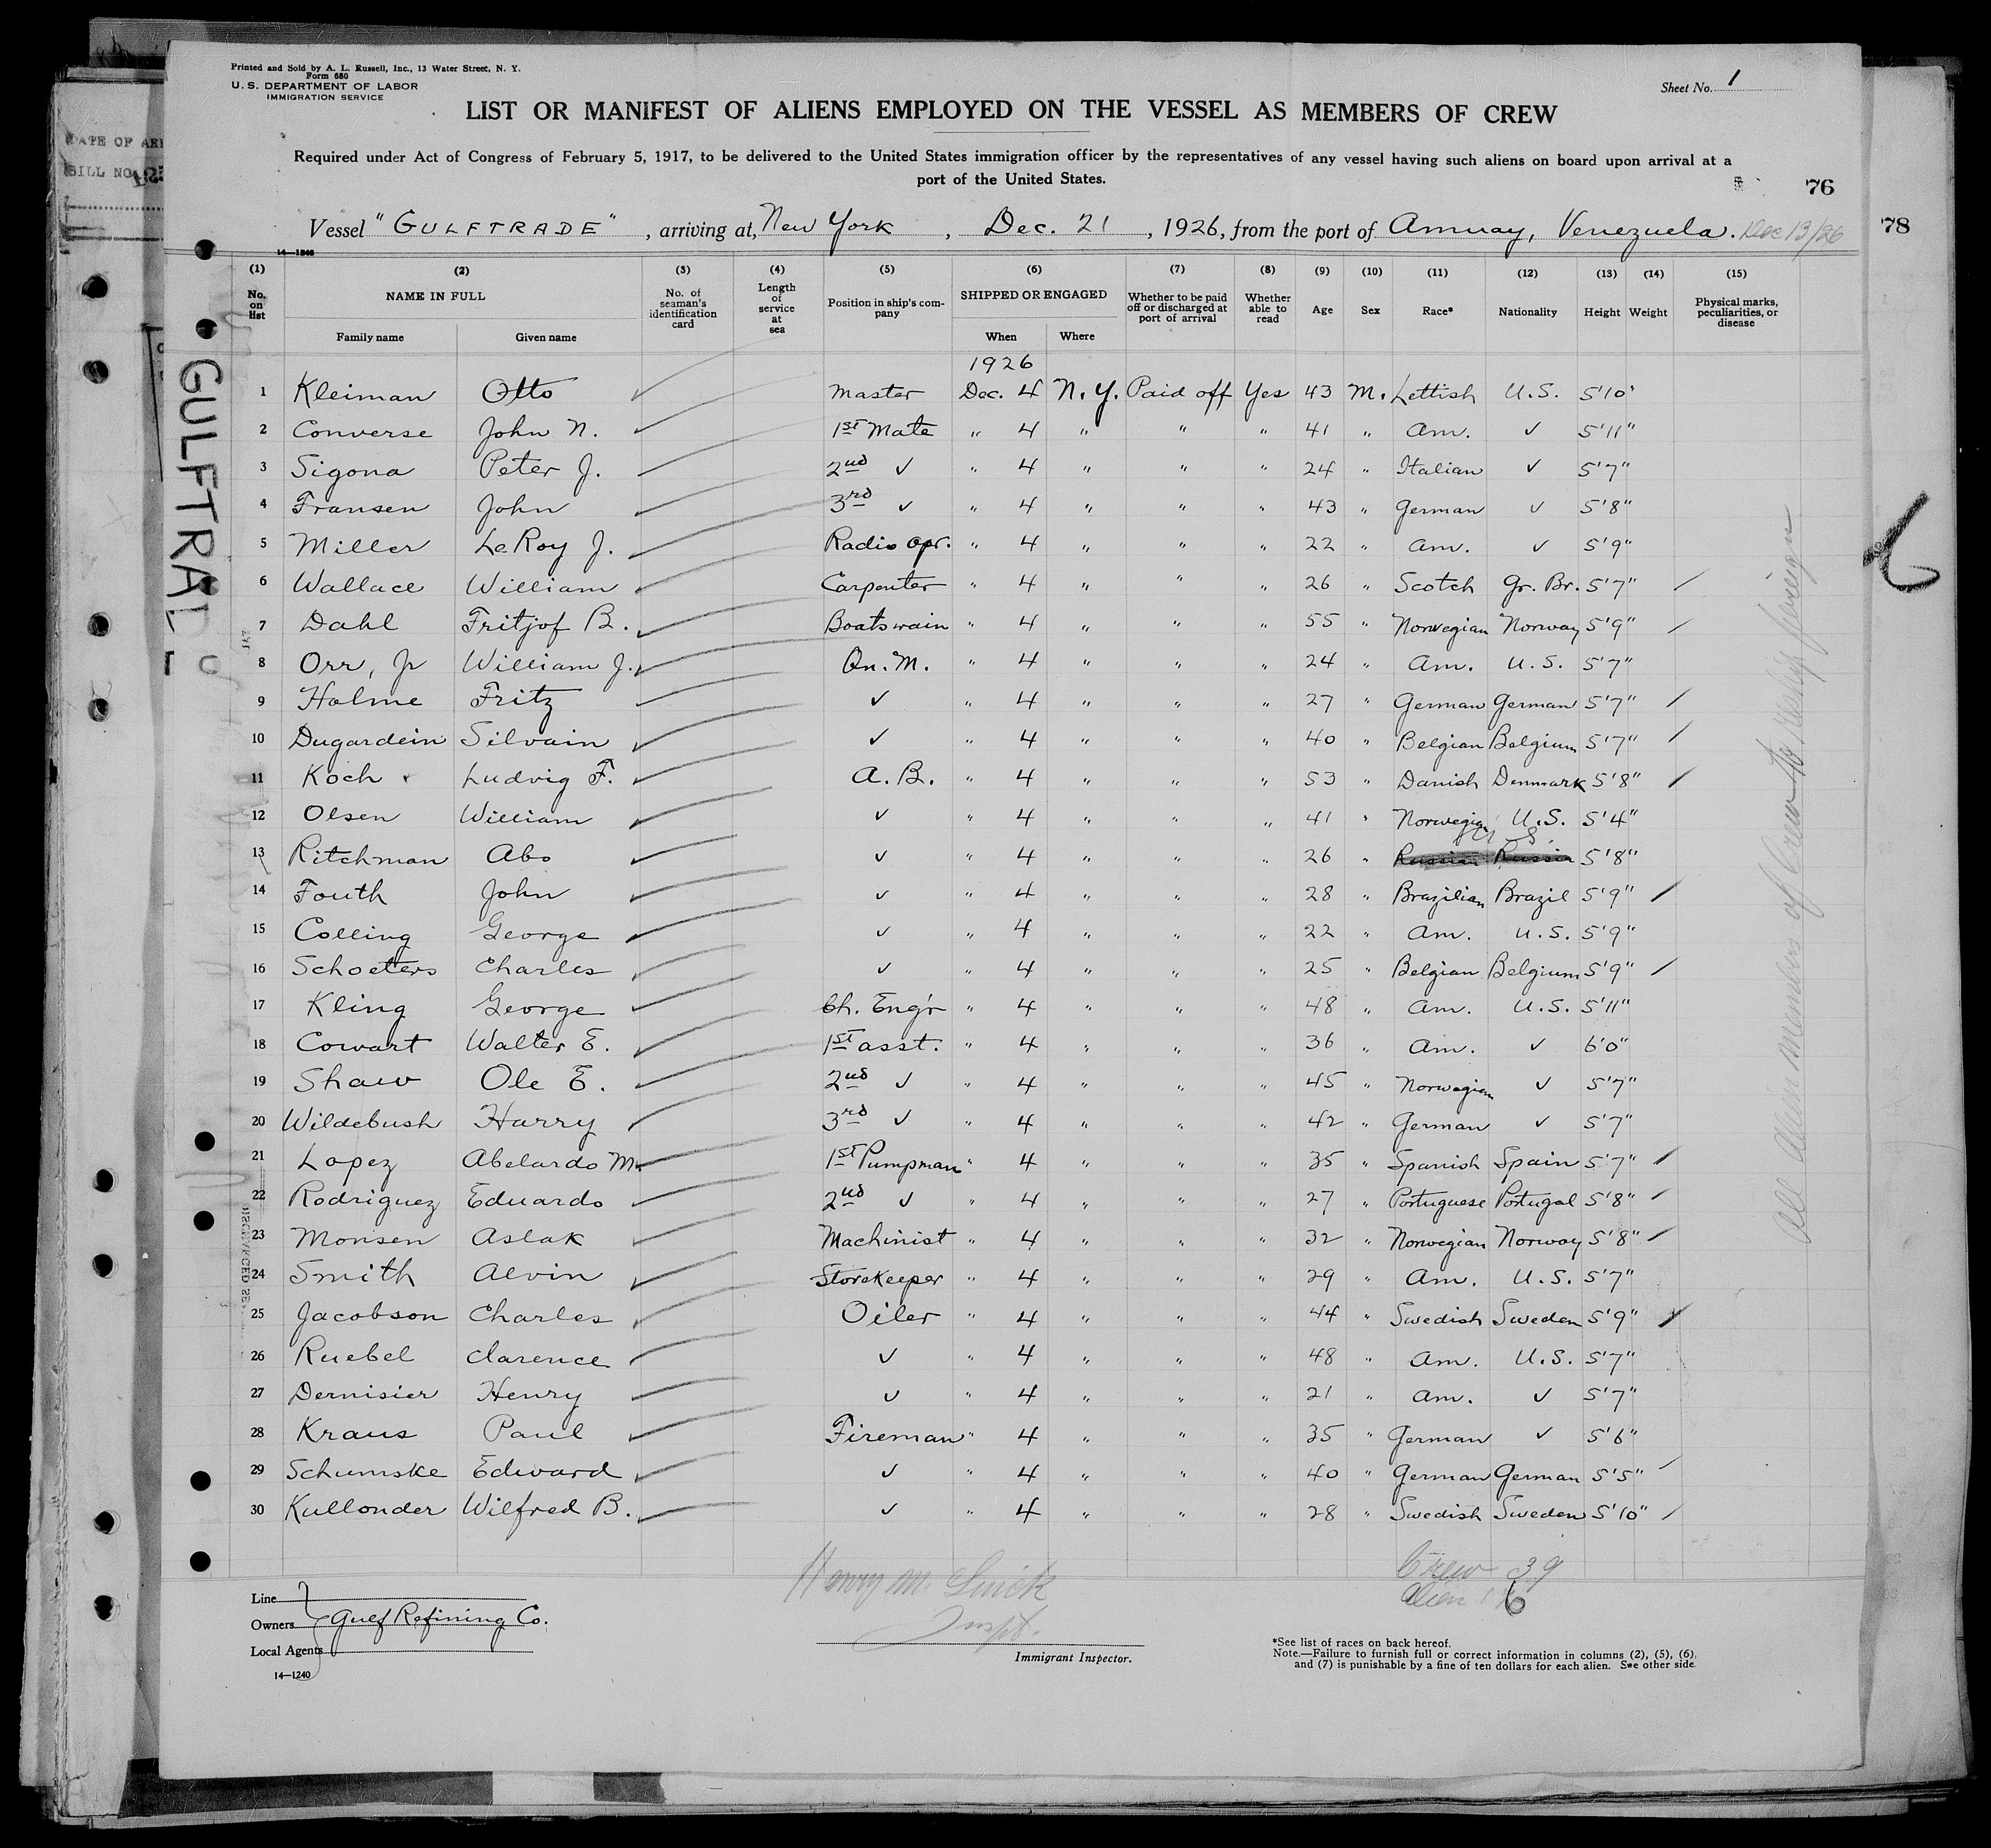 Printed and Sold by A. L. Russell, Inc., 13 Water Street, N. Y.
Form 680
U. S. DEPARTMENT OF LABOR
IMMIGRATION SERVICE
Sheet No. 1
LIST OR MANIFEST OF ALIENS EMPLOYED ON THE VESSEL AS MEMBERS OF CREW
Required under Act of Congress of February 5, 1917, to be delivered to the United States immigration officer by the representatives of any vessel having such aliens on board upon arrival at a
port of the United States.
76
78
Vessel "GULFTRADE", arriving at, New York, Dec. 21, 1926, from the port of Amuay, Venezuela. Dec 13/26
14—1240
(1) (2) (3) (4) (5) (6) (7) (8) (9) (10) (11) (12) (13) (14) (15)
No. on list NAME IN FULL Family name Given name No. of seaman's identification card Length of service at sea Position in ship's company SHIPPED OR ENGAGED When Where Whether to be paid off or discharged at port of arrival Whether able to read Age Sex Race* Nationality Height Weight Physical marks, peculiarities, or disease
1926
1 Kleiman Otto Master Dec. 4 N.Y. Paid off Yes 43 M. Lettish U.S. 5'10"
2 Converse John N. 1st Mate " 4 " " " 41 " Am. ✓ 5'11"
3 Sigona Peter J. 2nd ✓ " 4 " " " 24 " Italian ✓ 5'7"
4 Fransen John 3rd ✓ " 4 " " " 43 " German ✓ 5'8"
5 Miller LeRoy J. Radio opr. " 4 " " " 22 " Am. ✓ 5'9"
6 Wallace William Carpenter " 4 " " " 26 " Scotch Gr. Br. 5'7"
7 Dahl Fritjof B. Boatswain " 4 " " " 55 " Norwegian Norway 5'9"
8 Orr, Jr William J. Qu. M. " 4 " " " 24 " Am. U.S. 5'7"
9 Holme Fritz ✓ " 4 " " " 27 " German German 5'7"
10 Dugardein Silvain ✓ " 4 " " " 40 " Belgian Belgium 5'7"
11 Koch Ludvig F. A. B. " 4 " " " 53 " Danish Denmark 5'8"
12 Olsen William ✓ " 4 " " " 41 " Norwegian U.S. 5'4"
13 Ritchman Abo ✓ " 4 " " " 26 " Russian Russia 5'8"
14 Fouth John ✓ " 4 " " " 28 " Brazilian Brazil 5'9"
15 Colling George ✓ " 4 " " " 22 " Am. U.S. 5'9"
16 Schoeters Charles ✓ " 4 " " " 25 " Belgian Belgium 5'9"
17 Kling George Ch. Eng'r " 4 " " " 48 " Am. U.S. 5'11"
18 Cowart Walter E. 1st asst. " 4 " " " 36 " Am. ✓ 6'0"
19 Shaw Ole E. 2nd ✓ " 4 " " " 45 " Norwegian ✓ 5'7"
20 Wildebush Harry 3rd ✓ " 4 " " " 42 " German ✓ 5'7"
21 Lopez Abelardo M. 1st Pumpman " 4 " " " 35 " Spanish Spain 5'7"
22 Rodriguez Eduardo 2nd ✓ " 4 " " " 27 " Portuguese Portugal 5'8"
23 Monsen Aslak Machinist " 4 " " " 32 " Norwegian Norway 5'8"
24 Smith Alvin Storekeeper " 4 " " " 29 " Am. U.S. 5'7"
25 Jacobson Charles Oiler " 4 " " " 44 " Swedish Sweden 5'9"
26 Ruebel Clarence ✓ " 4 " " " 48 " Am. U.S. 5'7"
27 Dernisier Henry ✓ " 4 " " " 21 " Am. ✓ 5'7"
28 Kraus Paul Fireman " 4 " " " 35 " German ✓ 5'6"
29 Schumske Edward ✓ " 4 " " " 40 " German German 5'5"
30 Kullonder Wilfred B. ✓ " 4 " " " 28 " Swedish Sweden 5'10"
All Alien members of Crew to reship foreign
GULFTRAD
DATE OF
BILL NO.
Crew 39
Alien 16
Henry M.
Inspt.
Immigrant Inspector.
Line
Owners Gulf Refining Co.
Local Agents
14—1240
*See list of races on back hereof.
Note.—Failure to furnish full or correct information in columns (2), (5), (6),
and (7) is punishable by a fine of ten dollars for each alien. See other side.